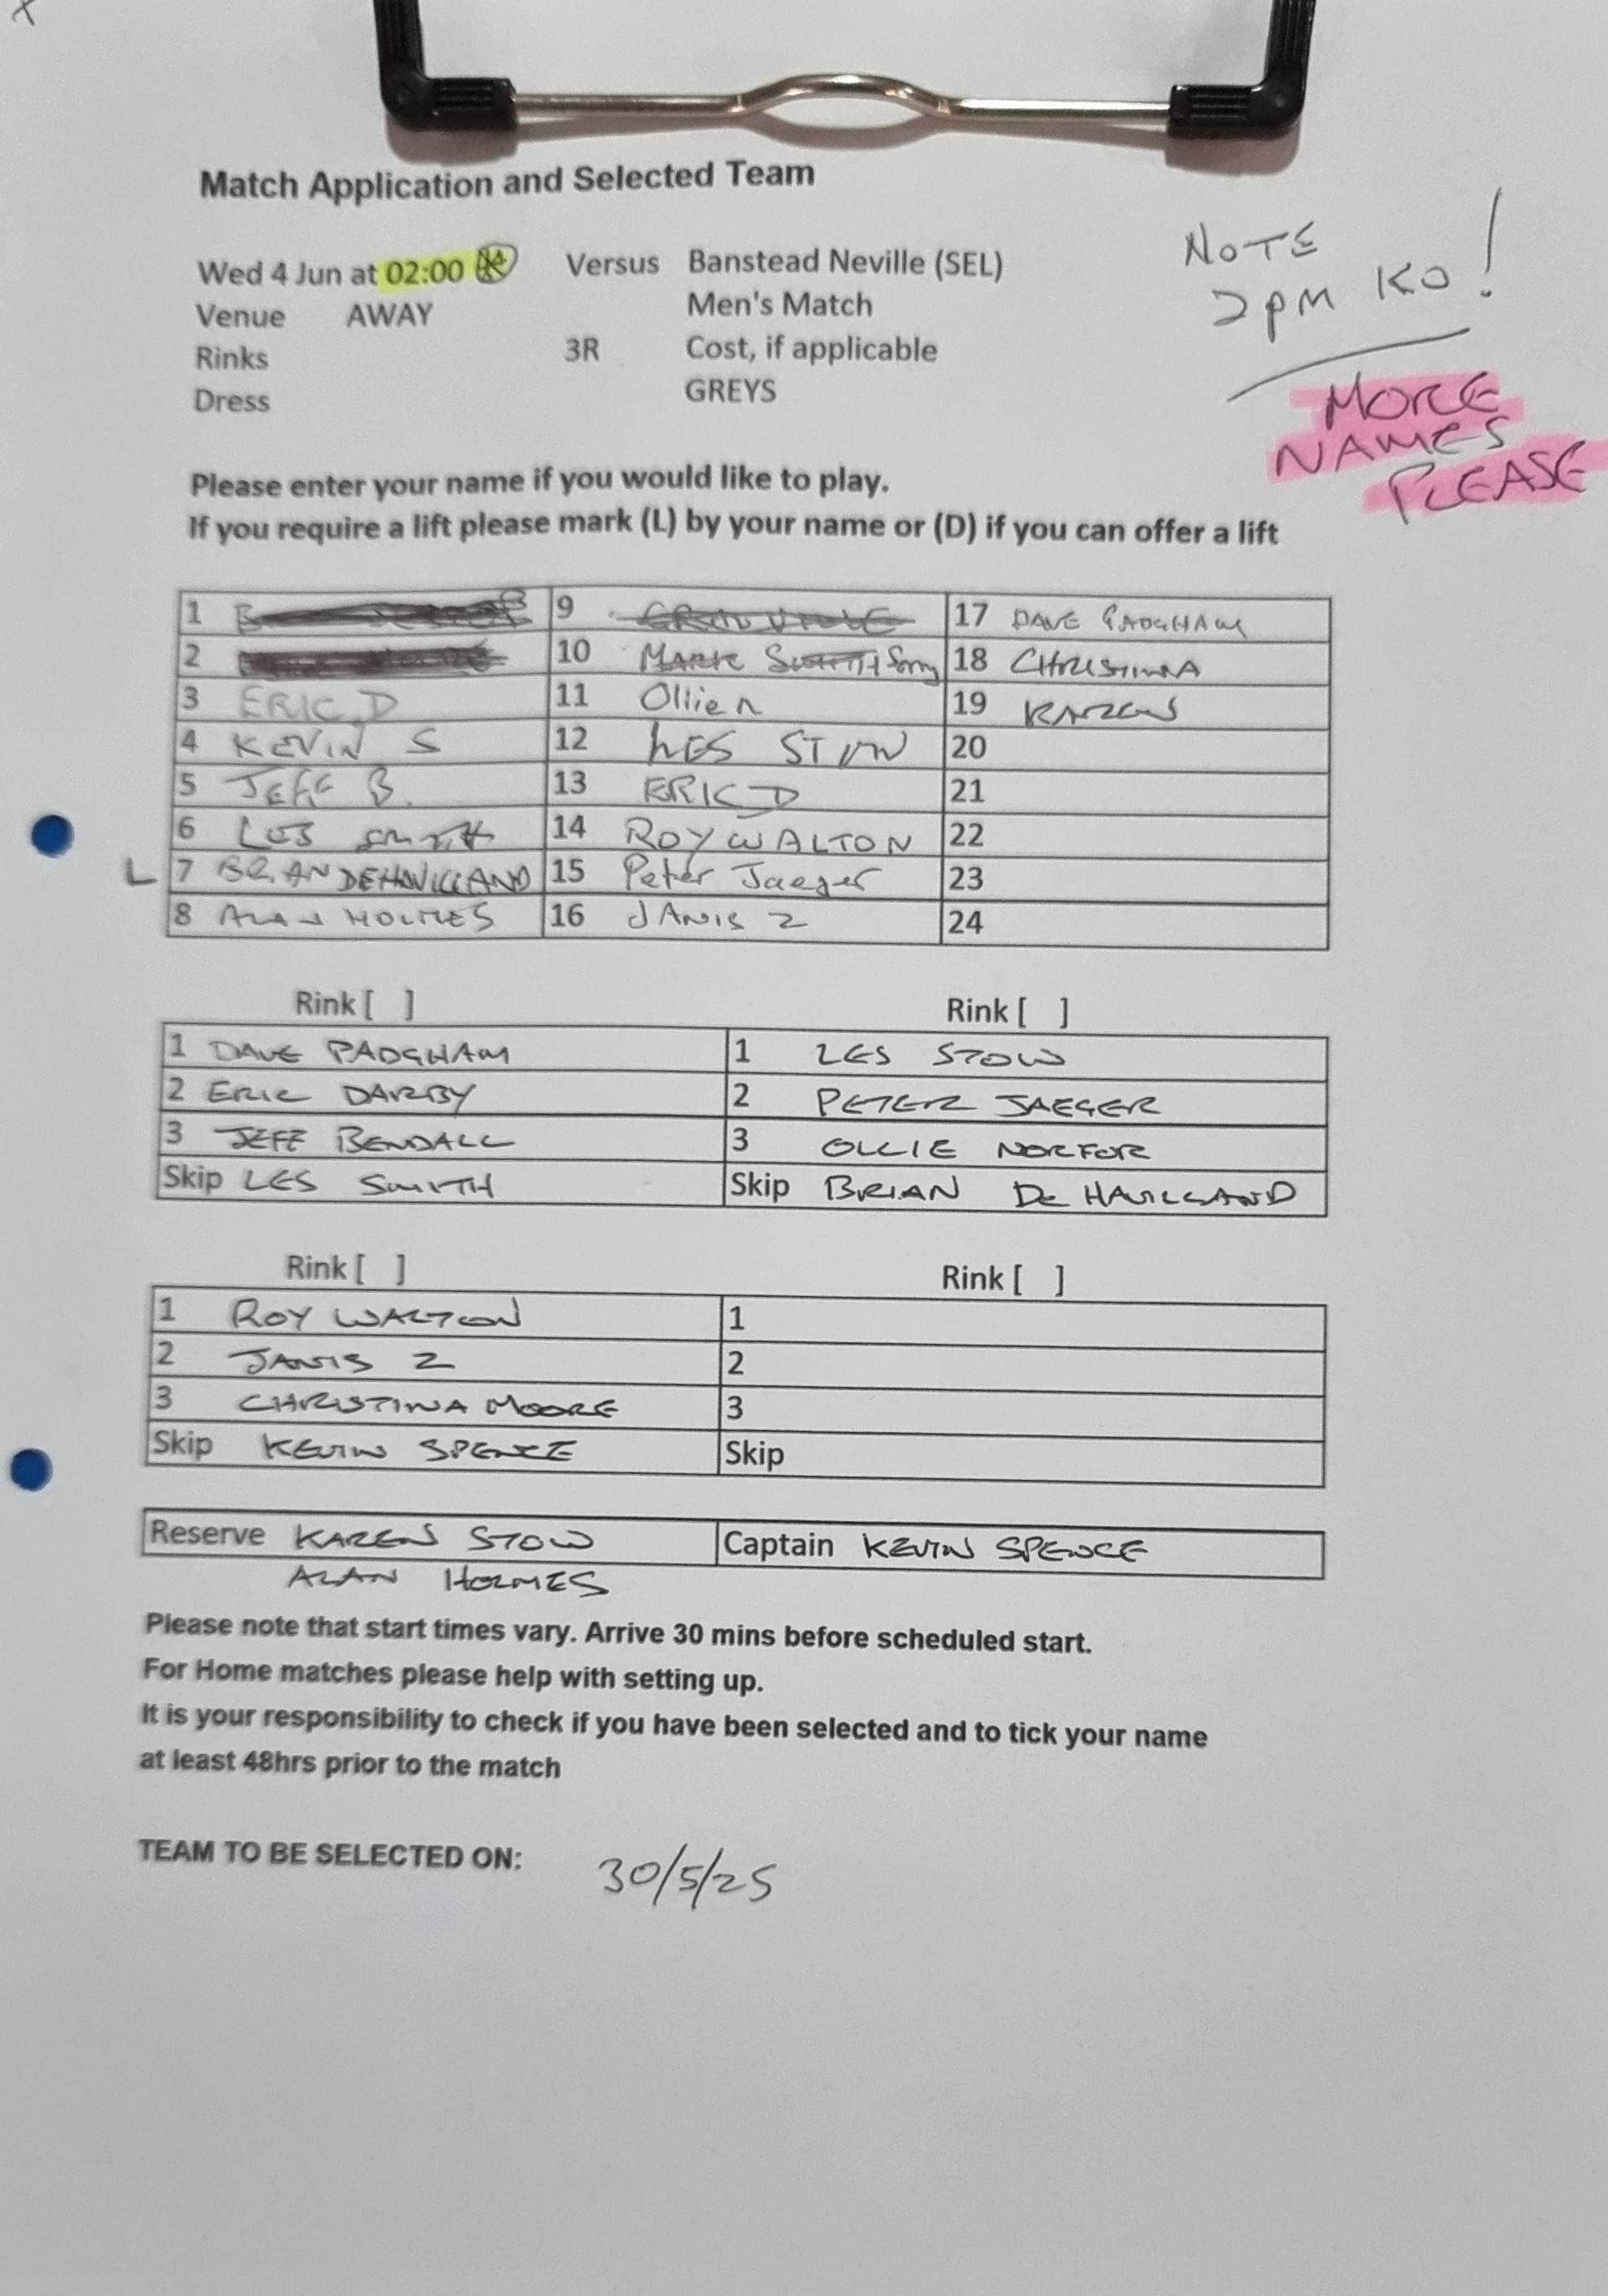 Match Application and Selected Team
NOTE
2PM KO!
Wed 4 Jun at 02:00 Versus Banstead Neville (SEL)
Venue AWAY Men's Match
Rinks 3R Cost, if applicable
Dress GREYS
MORE
NAMES
PLEASE
Please enter your name if you would like to play.
If you require a lift please mark (L) by your name or (D) if you can offer a lift
1 9 17 DAVE PADGHAM
2 10 MARK SMITH Sorry 18 CHRISTINA
3 ERIC D 11 Ollie N 19 KAREN S
4 KEVIN S 12 LES STOW 20
5 JEFF B. 13 ERIC D 21
6 LES Smith 14 ROY WALTON 22
L 7 BRIAN DEHAVILLAND 15 Peter Jaeger 23
8 ALAN HOLMES 16 JANIS Z 24
Rink [ ] Rink [ ]
1 DAVE PADGHAM 1 LES STOW
2 ERIC DARBY 2 PETER JAEGER
3 JEFF BENDALL 3 OLLIE NORFOR
Skip LES SMITH Skip BRIAN De HAVILLAND
Rink [ ] Rink [ ]
1 ROY WALTON 1
2 JANIS Z 2
3 CHRISTINA MOORE 3
Skip KEVIN SPENCE Skip
Reserve KAREN STOW Captain KEVIN SPENCE
ALAN HOLMES
Please note that start times vary. Arrive 30 mins before scheduled start.
For Home matches please help with setting up.
It is your responsibility to check if you have been selected and to tick your name
at least 48hrs prior to the match
TEAM TO BE SELECTED ON: 30/5/25